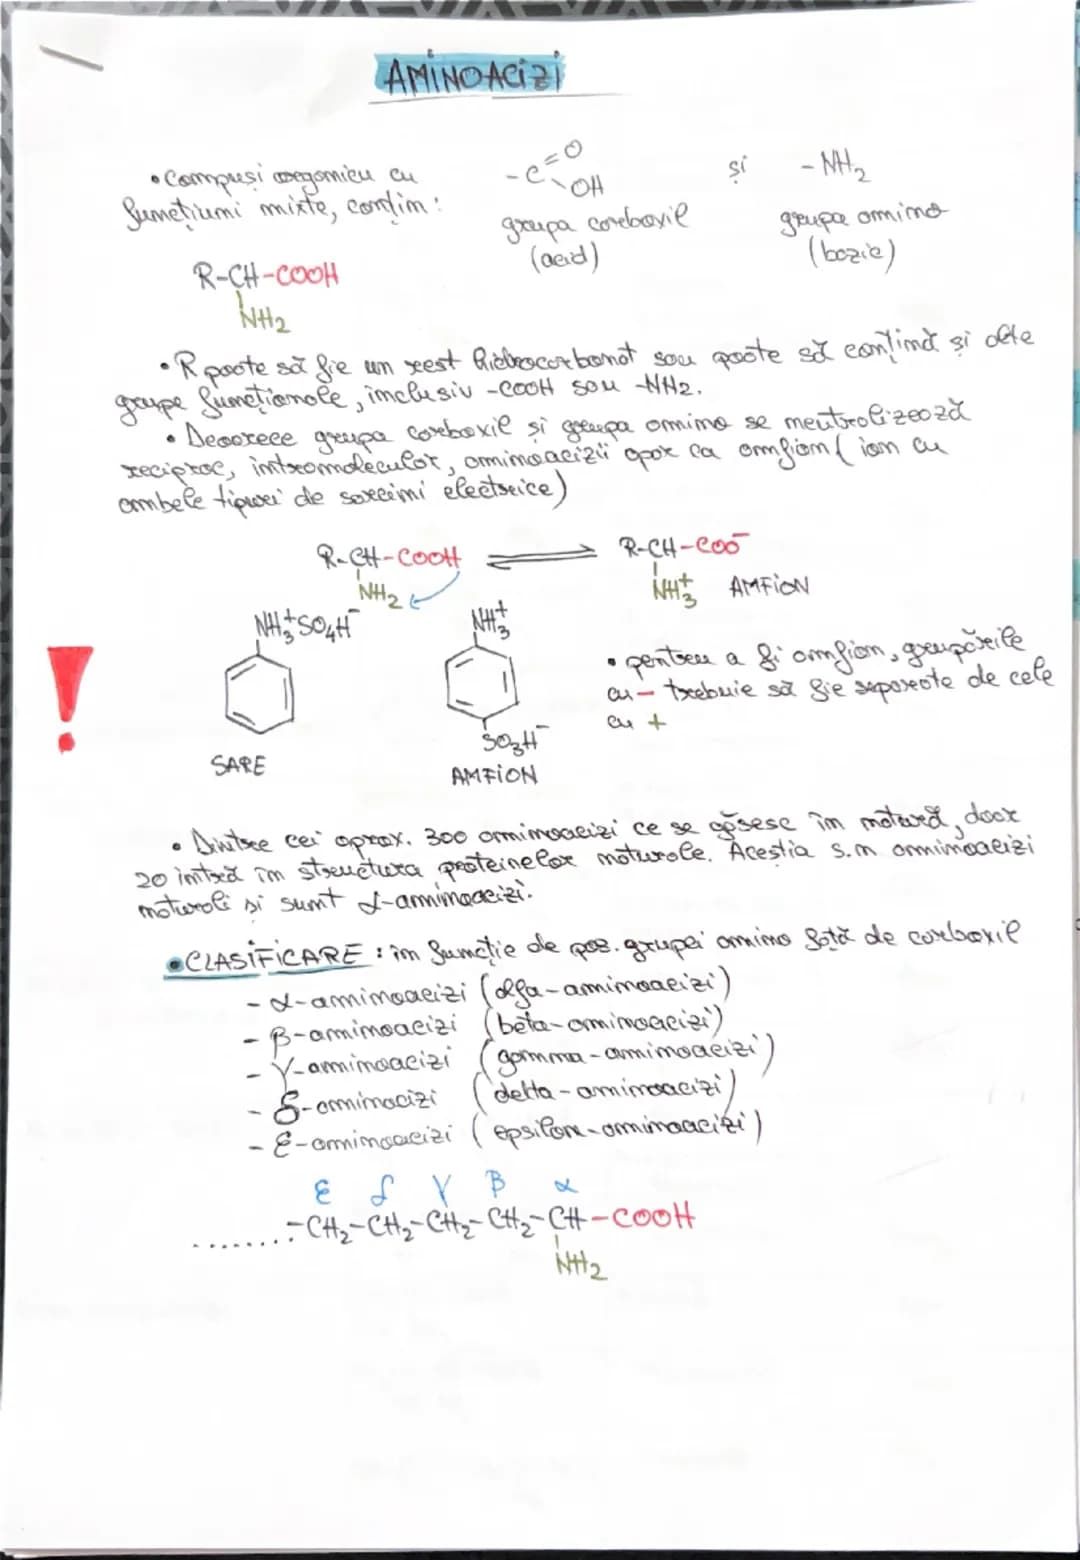 AMINOACIZI
• Compuși organici cu
funcțiuni mixte, conțin:
-C=O
OH
grupa carboxil
(acid)
și
-NH2
grupa amino
(bazic)
R-CH-COOH
NH2
• R poate să fie un rest hidrocarbonat sau poate să conțină și alte
grupe funcționale, inclusiv -COOH sau -NH2.
• Deoarece grupa carboxil și grupa amino se neutralizează
reciproc, intramolecular, aminoacizii apar ca amfion (ion cu
ambele tipuri de sarcini electrice)
R-CH-COOH ⇌ R-CH-COO⁻
NH2 NH3⁺ AMFION
NH3⁺SO4H⁻
NH3⁺
SO3H⁻
SARE
AMFION
• pentru a fi amfion, grupările
cu - trebuie să fie separate de cele
cu +
!
• Dintre cei aprox. 300 aminoacizi ce se găsesc în natură, doar
20 intră în structura proteinelor naturale. Aceștia s.n aminoacizi
naturali și sunt α-aminoacizi.
• CLASIFICARE : în funcție de poz. grupei amino față de carboxil
- α-aminoacizi (alfa-aminoacizi)
- β-aminoacizi (beta-aminoacizi)
- γ-aminoacizi (gamma-aminoacizi)
- δ-aminoacizi (delta-aminoacizi)
- ε-aminoacizi (epsilon-aminoacizi)
ε δ γ β α
........-CH2-CH2-CH2-CH2-CH-COOH
NH2